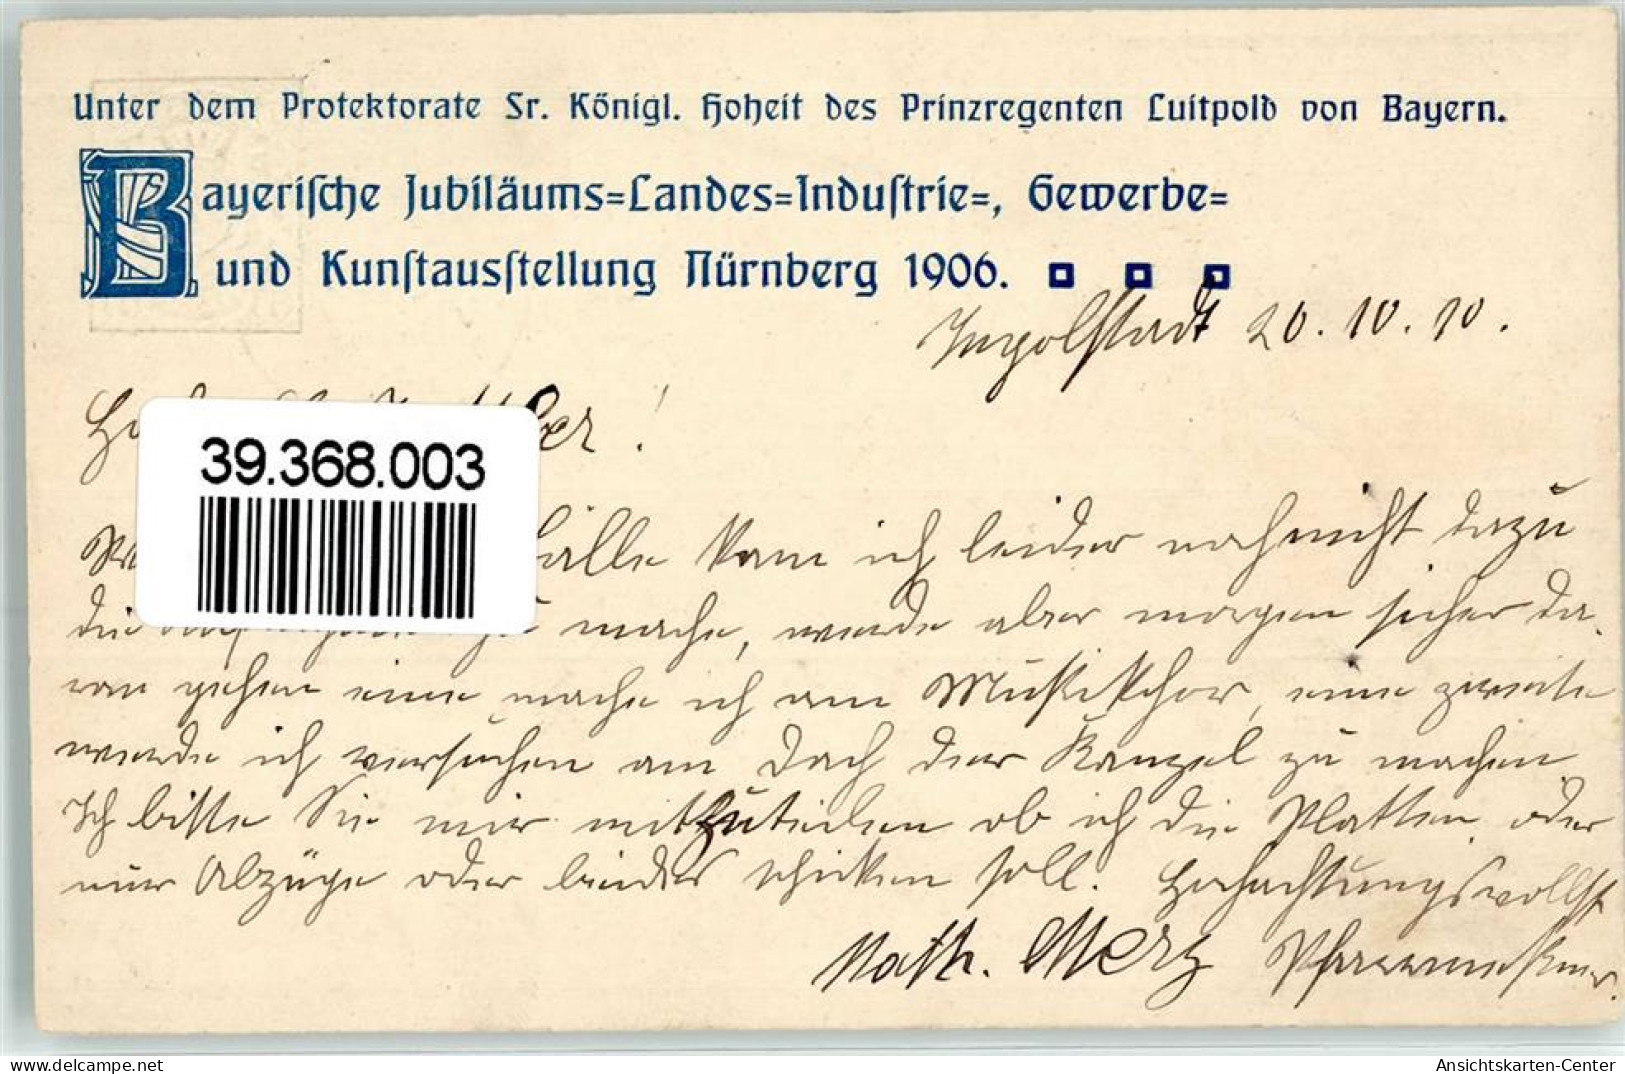 Unter dem Protektorate Sr. Königl. Hoheit des Prinzregenten Luitpold von Bayern.
Bayerische Jubiläums=Landes=Industrie=, Gewerbe=
und Kunstausstellung Nürnberg 1906.
Ingolstadt 20.10.10.
!
39.368.003
kam ich leider noch nicht dazu
die zu mache, werde aber morgen sicher da-
ran gehen eine mache ich am Musikchor, eine zweite
werde ich versuchen am Dach der Kanzel zu machen
Ich bitte Sie mir mitzuteilen ob ich die Platten oder
nur Abzüge oder beides schicken soll. Hochachtungsvollst
Math. Merz
Ansichtskarten-Center